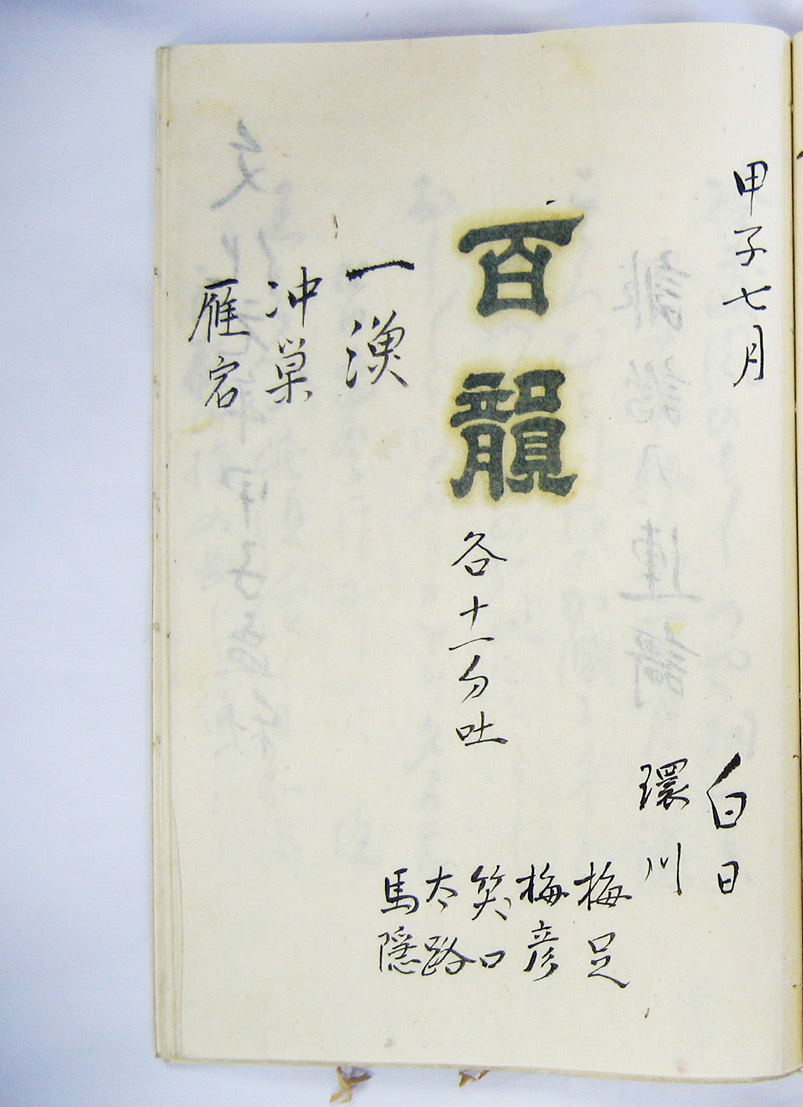 甲子七月
白日
環川
梅足
百韻
各十一句吐
梅彦
笑口
太路
馬隠
一漁
冲巣
雁宕